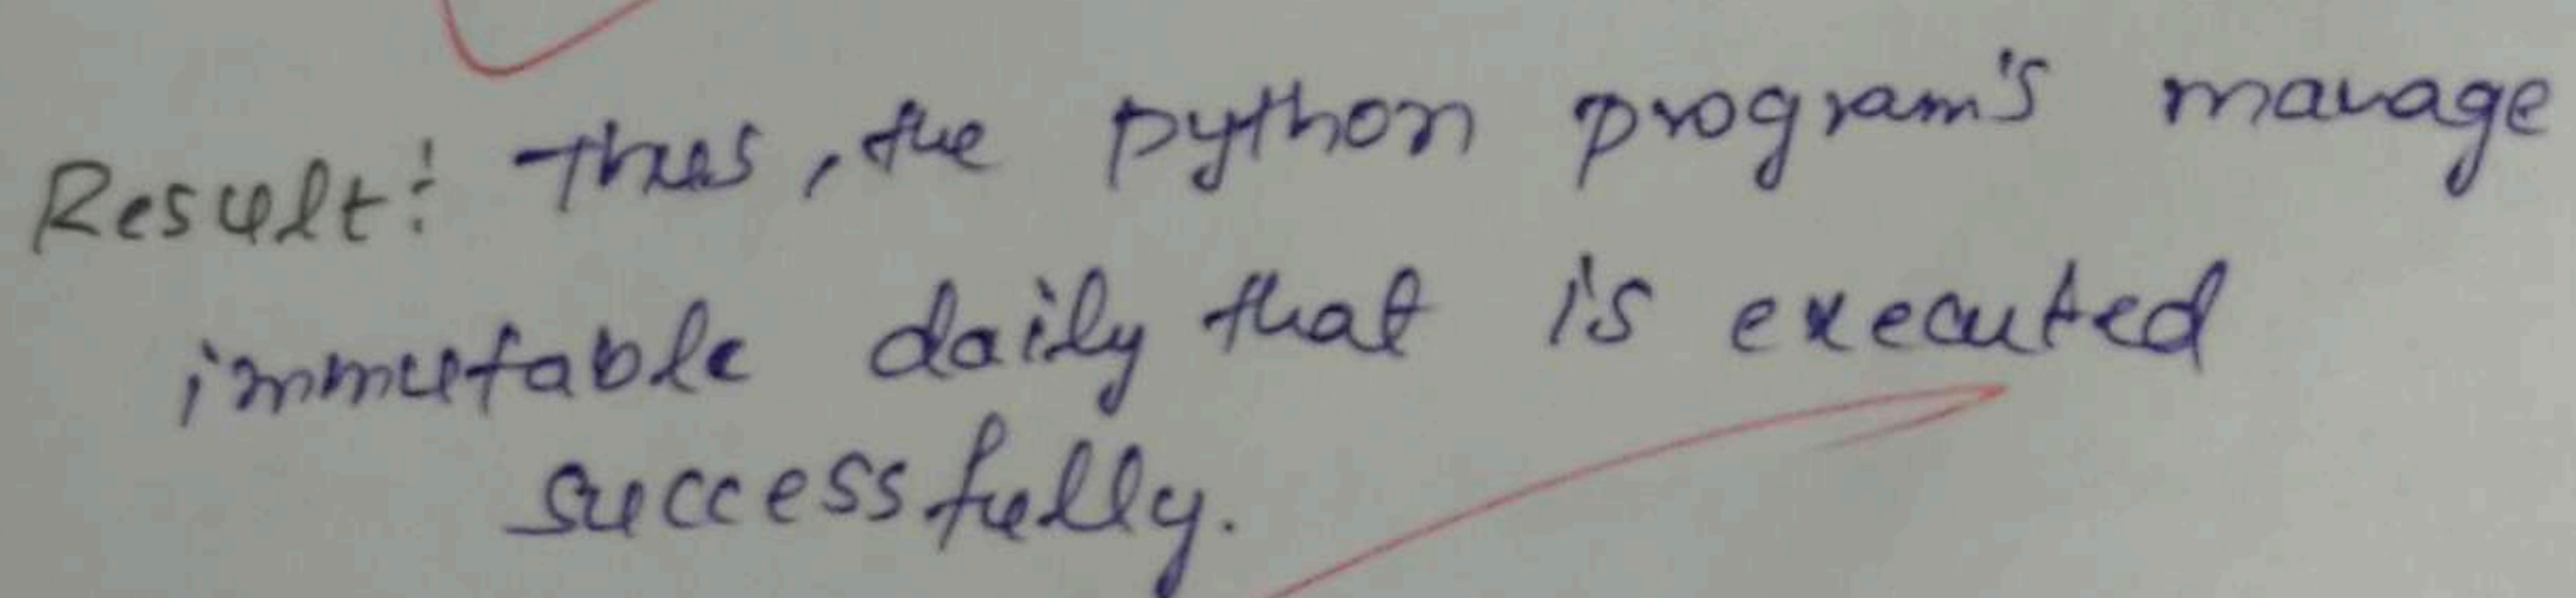 Result: Thus, the python program's manage
immutable daily that is executed
successfully.